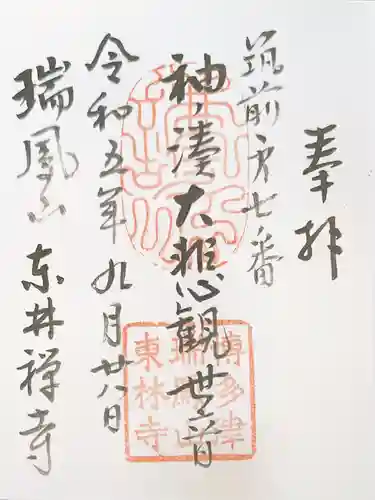 奉拝
筑前第七番
袖湊大悲観世音
令和五年九月廿八日
瑞鳳山東林禅寺
博多津
瑞鳳山
東林寺